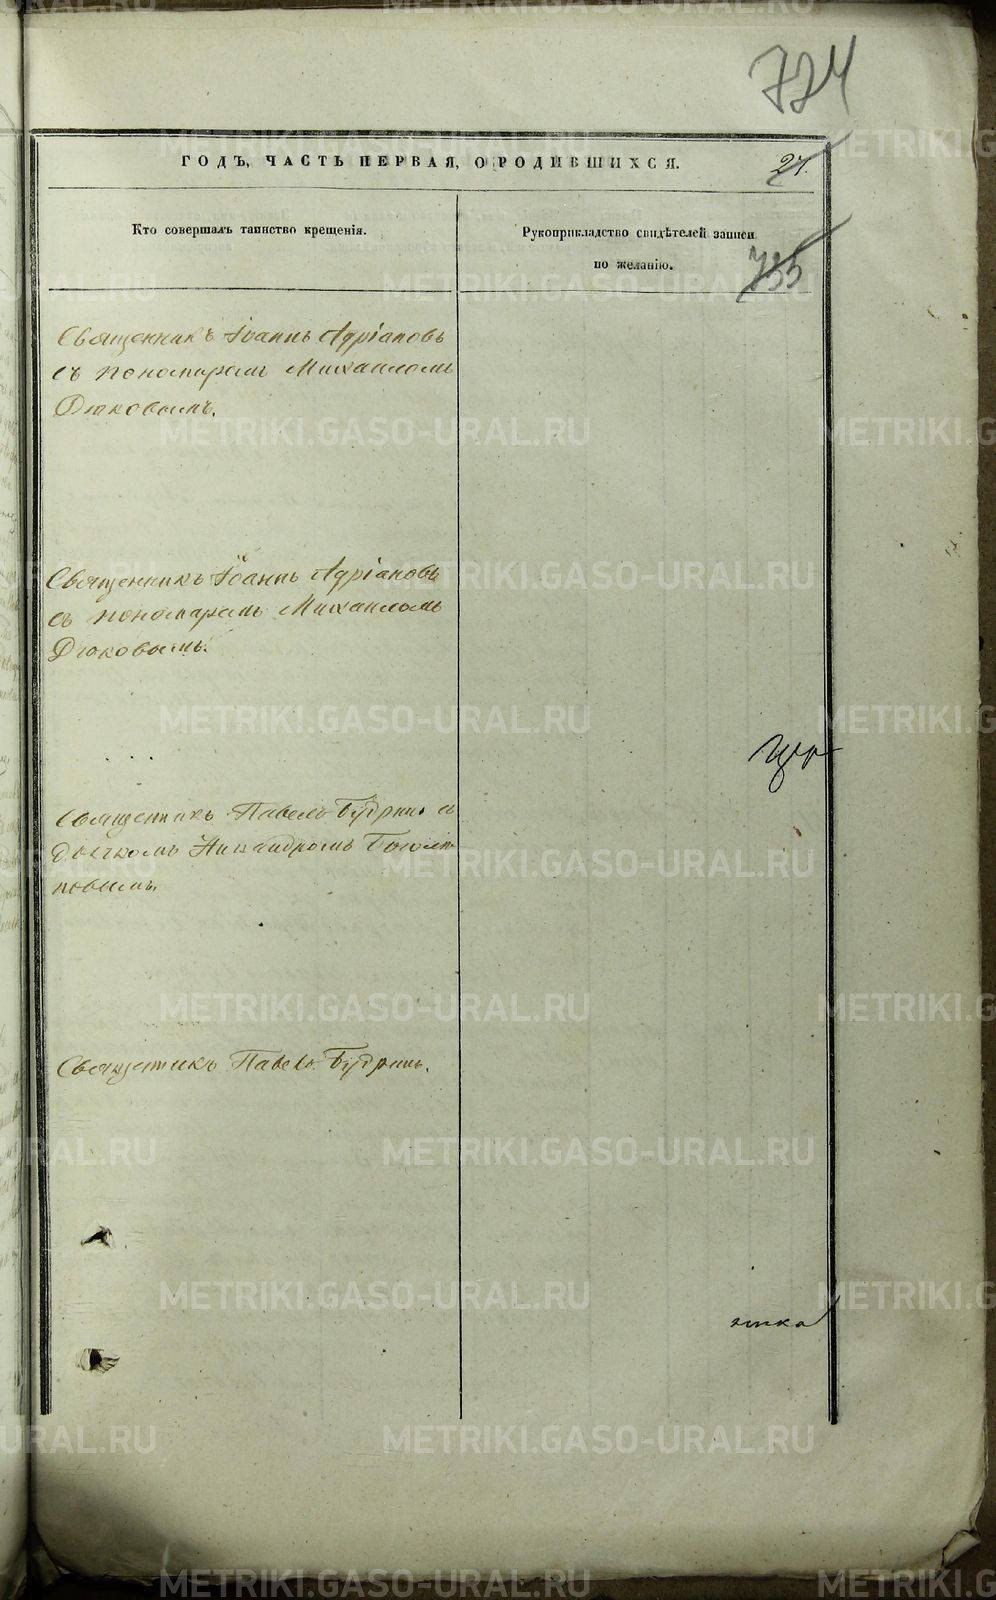 724
ГОДЪ, ЧАСТЬ ПЕРВАЯ, О РОДИВШИХСЯ.
27.
Кто совершалъ таинство крещенія.
Рукоприкладство свидѣтелей записи
по желанію.
735
Священникъ Іоаннъ Адріановъ
съ пономаремъ Михаиломъ
Дюковымъ.
Священникъ Іоаннъ Адріановъ
съ пономаремъ Михаиломъ
Дюковымъ.
Священникъ Павелъ Будринъ съ
дьячкомъ Никандромъ
повымъ.
Священникъ Павелъ Будринъ.
METRIKI.GASO-URAL.RU